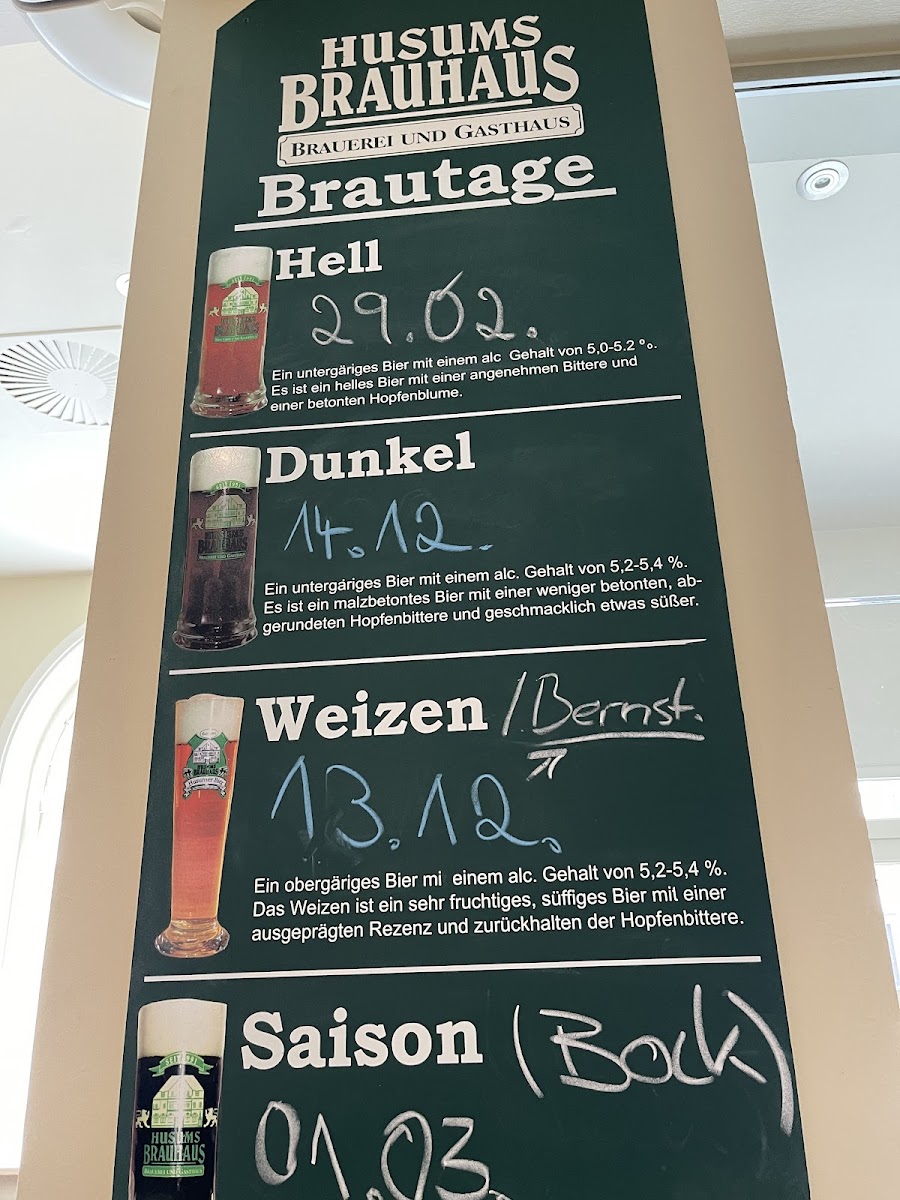 HUSUMS
BRAUHAUS
BRAUEREI UND GASTHAUS
Brautage
Hell
29.02.
Ein untergäriges Bier mit einem alc Gehalt von 5,0-5.2 %.
Es ist ein helles Bier mit einer angenehmen Bittere und
einer betonten Hopfenblume.
Dunkel
14.12.
Ein untergäriges Bier mit einem alc. Gehalt von 5,2-5,4 %.
Es ist ein malzbetontes Bier mit einer weniger betonten, ab-
gerundeten Hopfenbittere und geschmacklich etwas süßer.
Weizen /.Bernst.
13.12.
Ein obergäriges Bier mi einem alc. Gehalt von 5,2-5,4 %.
Das Weizen ist ein sehr fruchtiges, süffiges Bier mit einer
ausgeprägten Rezenz und zurückhalten der Hopfenbittere.
Saison (Bock)
01.03.
HUSUMS
BRAUHAUS
BRAUEREI UND GASTHAUS